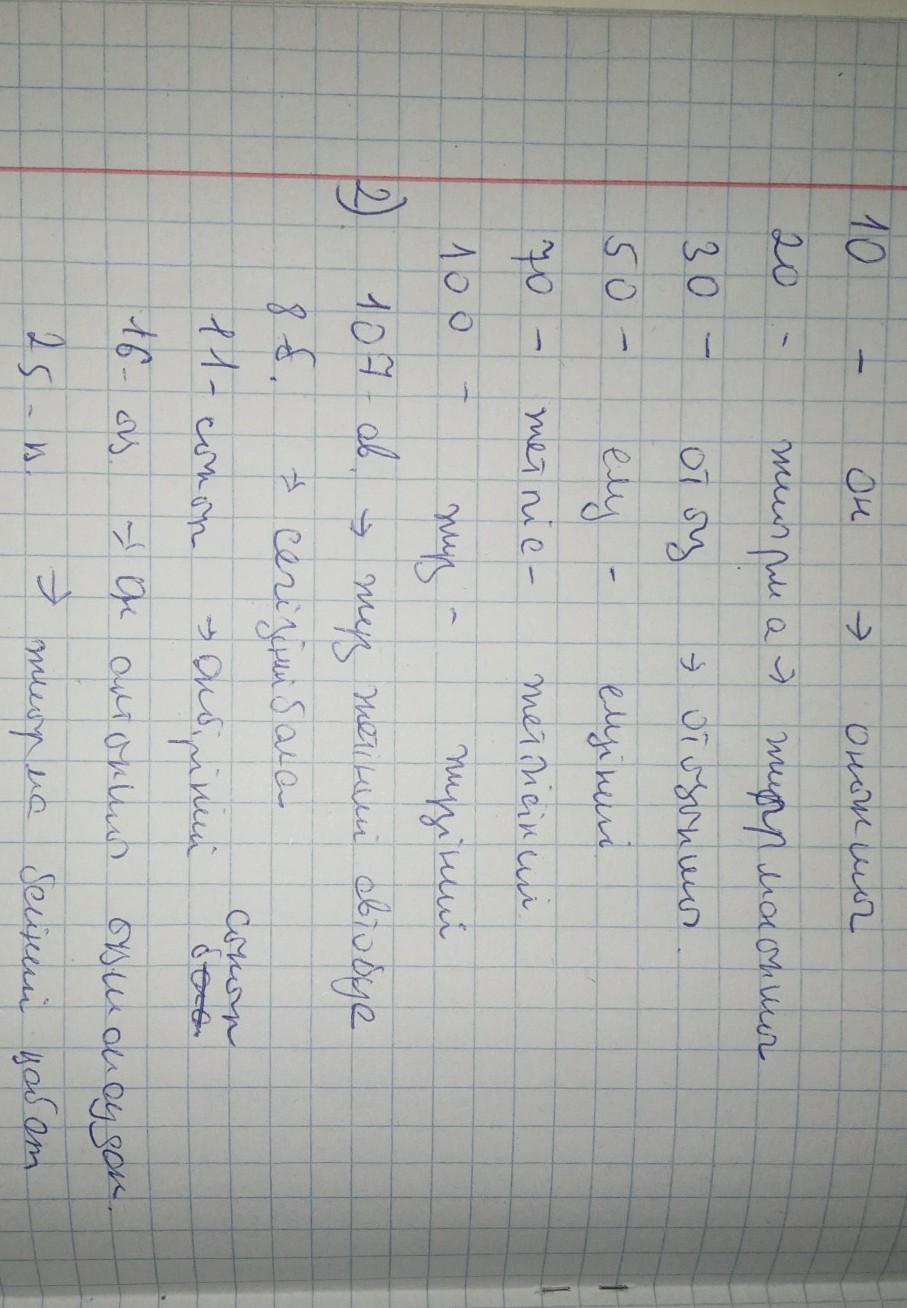 10 - он → оныншы
20 - жиырма → жиырмасыншы
30 - отыз → отызыншы.
50 - елу - елуінші
70 - жетпіс - жетпісінші.
100 - жүз - жүзінші
2) 107 - ав. → жүз жетінші автобус
8 б. → сегізінші бала
11 - сынып → он бірінші сынып
16 - ау. → Он алтыншы
25 - п. → жиырма бесінші